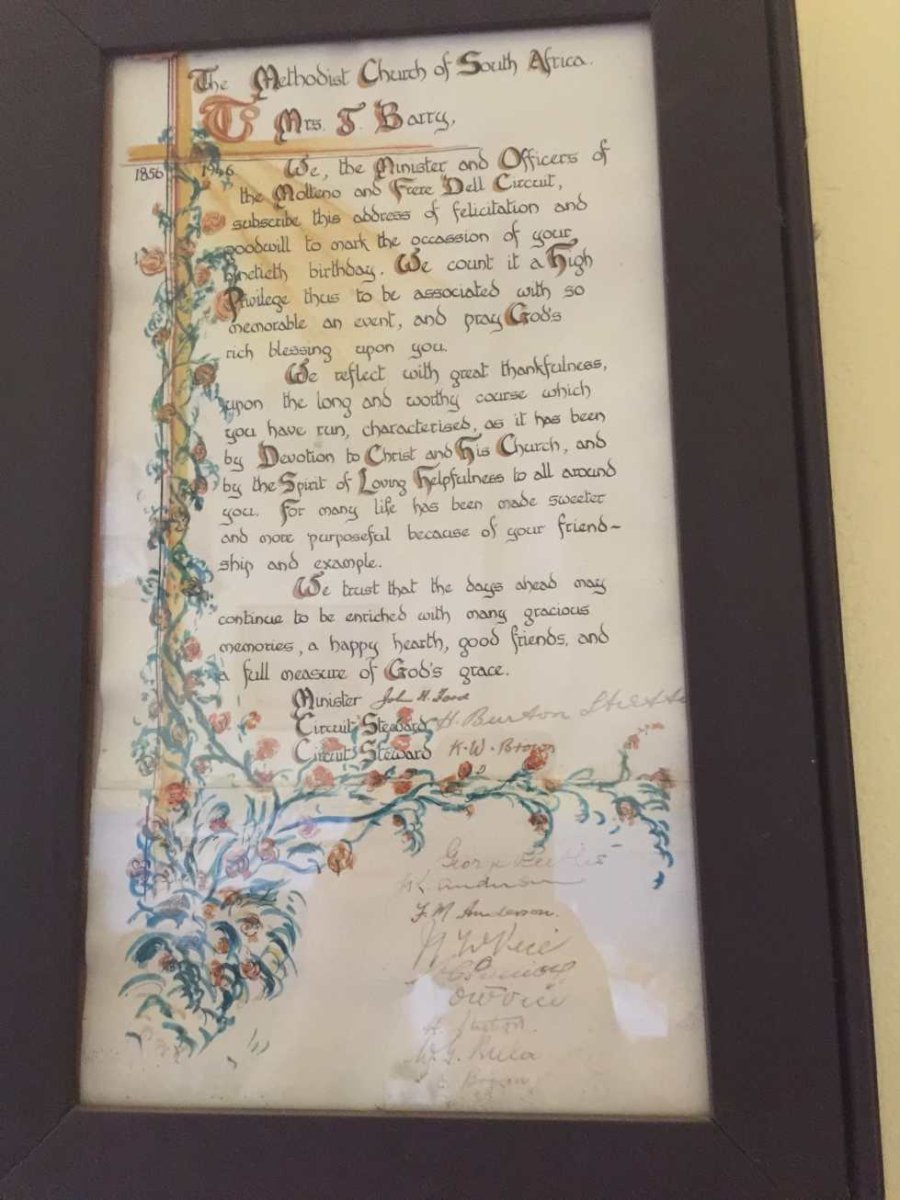 The Methodist Church of South Africa.
To Mrs. F. Barry,
1856 1946
We, the Minister and Officers of
the Molteno and Frere Dell Circuit,
subscribe this address of felicitation and
goodwill to mark the occassion of your
ninetieth birthday. We count it a High
Privilege thus to be associated with so
memorable an event, and pray God's
rich blessing upon you.
We reflect with great thankfulness,
upon the long and worthy course which
you have run, characterised, as it has been
by Devotion to Christ and His Church, and
by the Spirit of Loving Helpfulness to all around
you. For many life has been made sweeter
and more purposeful because of your friend~
ship and example.
We trust that the days ahead may
continue to be enriched with many gracious
memories, a happy hearth, good friends, and
a full measure of God's grace.
Minister John H.
Circuit Steward H. Burton
Circuit Steward K. W. Brown
George
Anderson
F. M. Anderson.